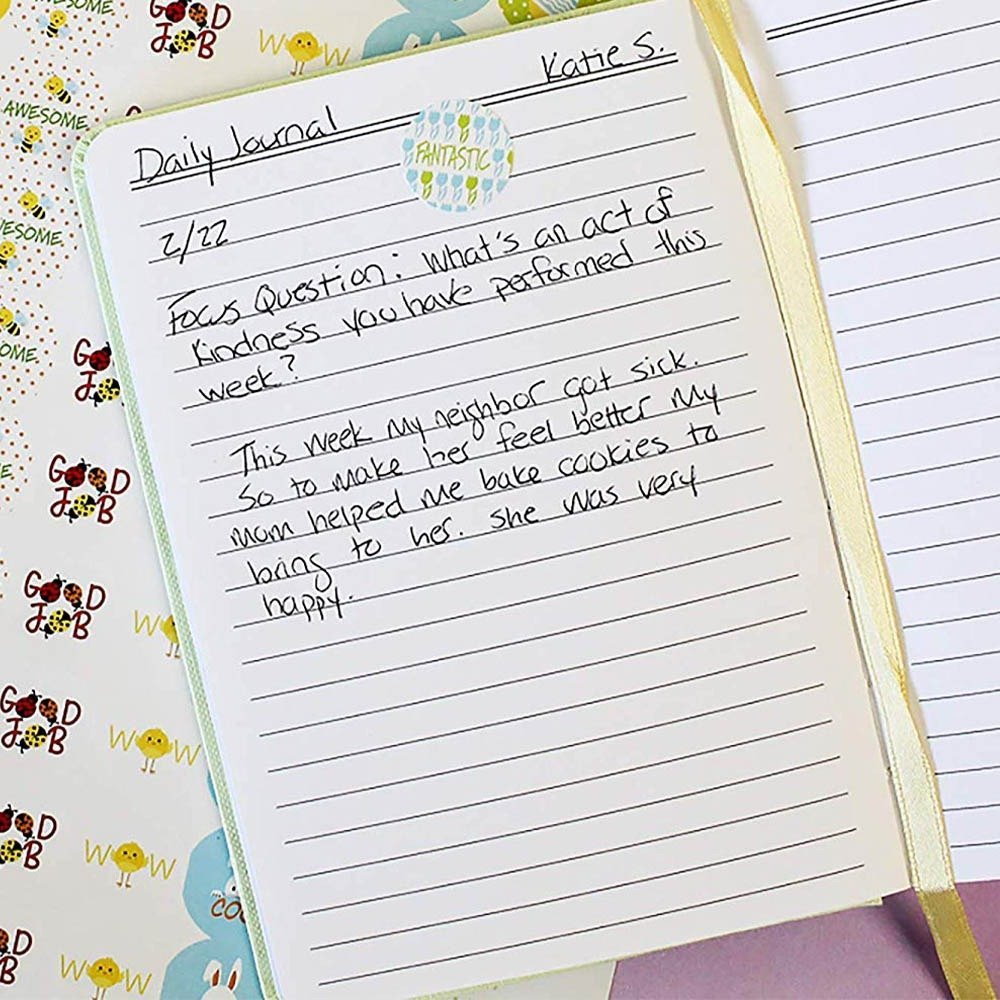 Katie S.
Daily Journal
FANTASTIC
2/22
Focus Question: What's an act of
kindness you have performed this
week?
This week my neighbor got sick.
So to make her feel better my
mom helped me bake cookies to
bring to her. She was very
happy.
AWESOME
GOOD
JOB
WOW
AWESOME
ESOME.
OME.
GOOD
JOB
E
GOOD
JOB
GOOD
JOB
W
GOOD
JOB
WOW
OOD
OB
WOW
COO
D
B
WOW